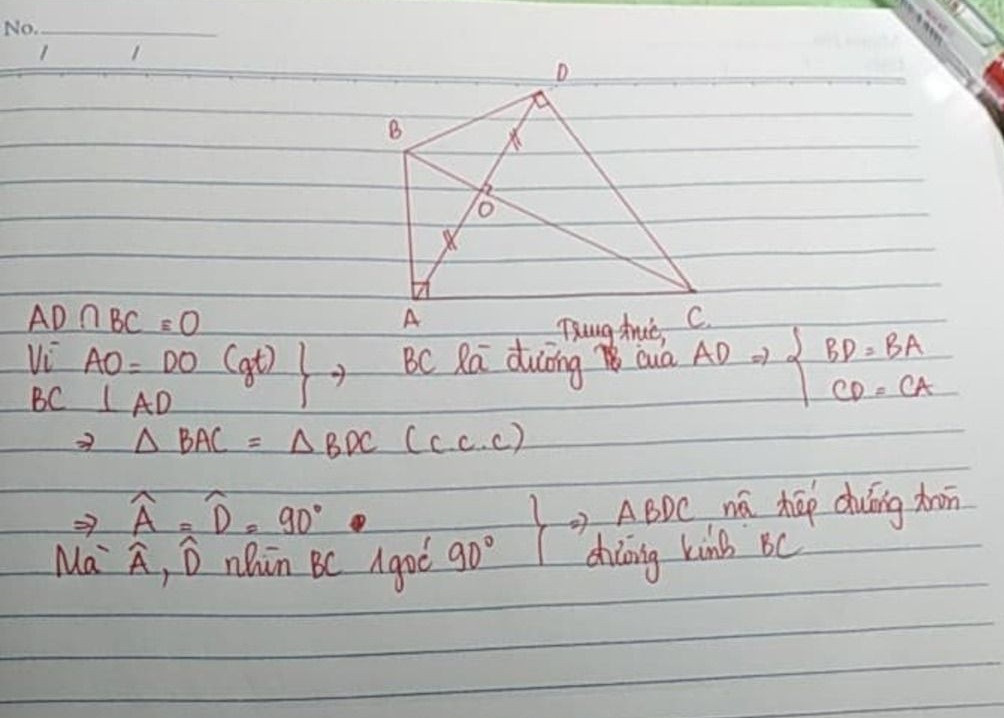 No.
/ /
D
B
O
A
C.
AD ∩ BC = O
Vì AO = DO (gt)
BC ⊥ AD
} ⇒ BC là đường Trung trực của AD ⇒ { BD = BA
CD = CA
⇒ Δ BAC = Δ BDC (c.c.c)
⇒ Â = D̂ = 90°
Mà Â, D̂ nhìn BC 1 góc 90°
} ⇒ ABDC nội tiếp đường tròn
đường kính BC